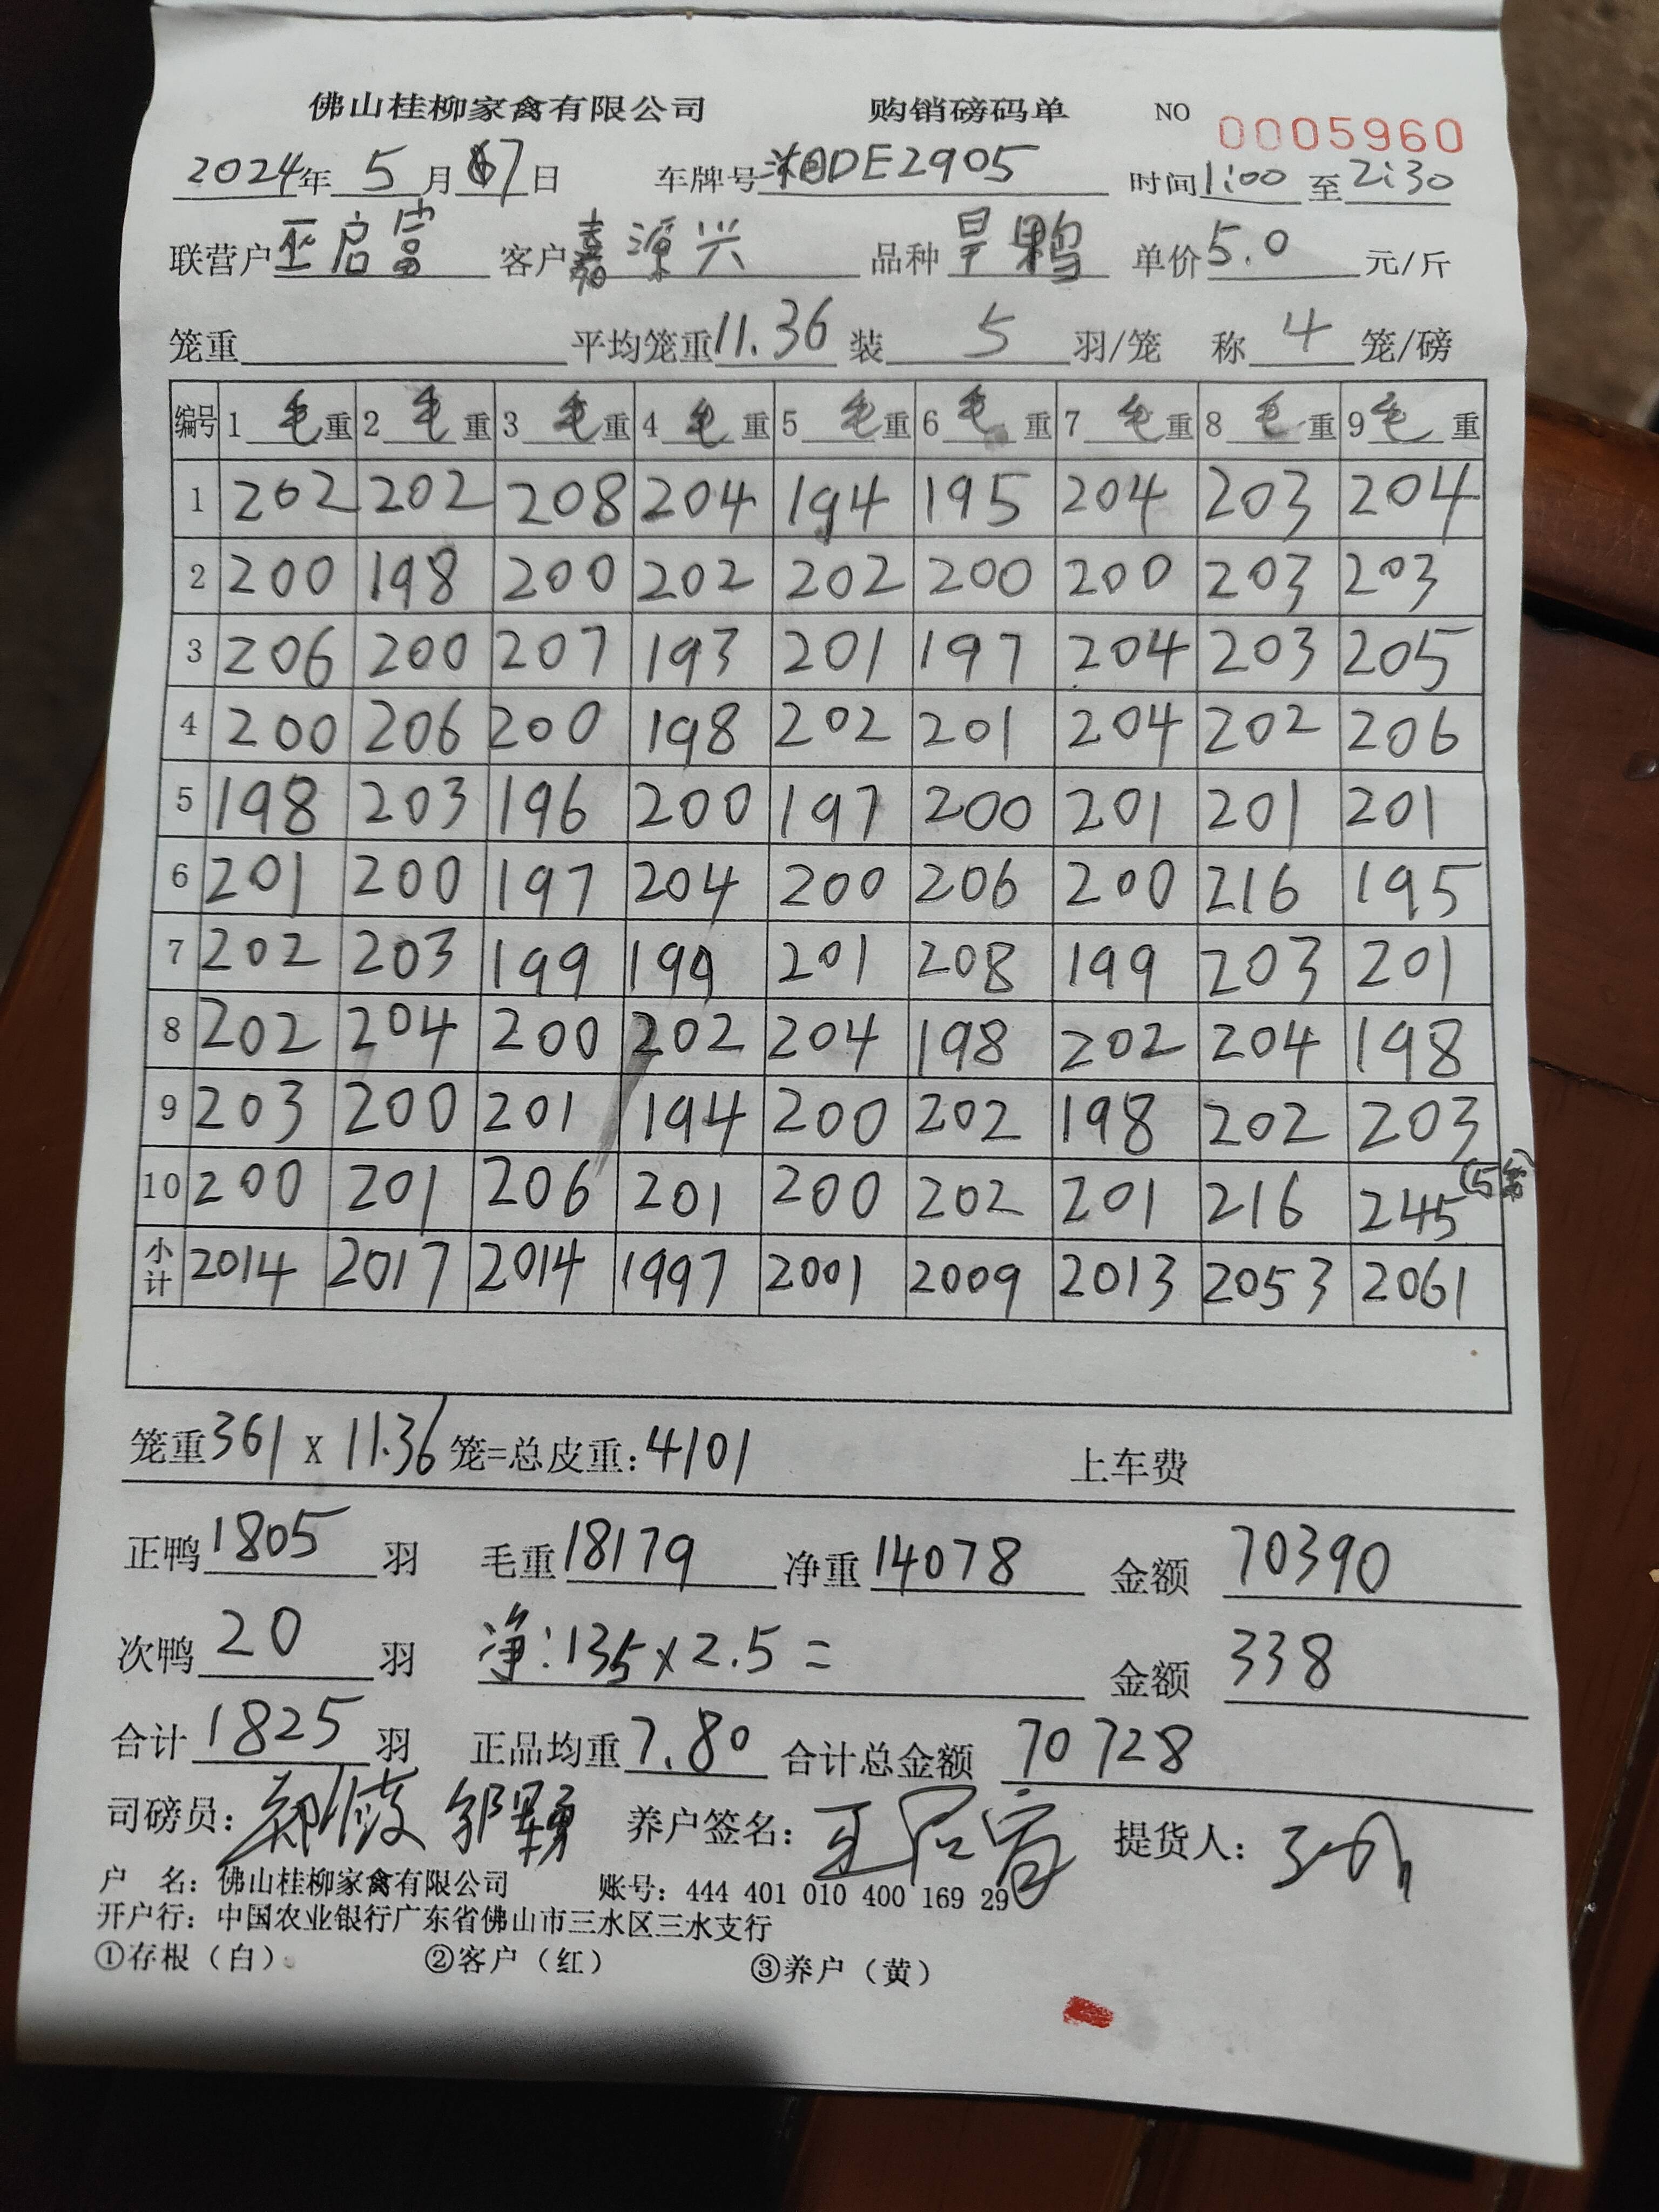 佛山桂柳家禽有限公司 购销磅码单 NO 0005960
2024年 5 月 7 日 车牌号 湘DE2905 时间 1:00 至 2:30
联营户 巫启富 客户 嘉源兴 品种 旱鸭 单价 5.0 元/斤
笼重 平均笼重 11.36 装 5 羽/笼 称 4 笼/磅
编号 1 毛重 2 毛重 3 毛重 4 毛重 5 毛重 6 毛重 7 毛重 8 毛重 9 毛重
1 202 202 208 204 194 195 204 203 204
2 200 198 200 202 202 200 200 203 203
3 206 200 207 193 201 197 204 203 205
4 200 206 200 198 202 201 204 202 206
5 198 203 196 200 197 200 201 201 201
6 201 200 197 204 200 206 200 216 195
7 202 203 199 199 201 208 199 203 201
8 202 204 200 202 204 198 202 204 198
9 203 200 201 194 200 202 198 202 203
10 200 201 206 201 200 202 201 216 245 (5笼)
小计 2014 2017 2014 1997 2001 2009 2013 2053 2061
笼重 361 X 11.36 笼=总皮重: 4101 上车费
正鸭 1805 羽 毛重 18179 净重 14078 金额 70390
次鸭 20 羽 净: 135 x 2.5 = 金额 338
合计 1825 羽 正品均重 7.80 合计总金额 70728
司磅员: 养户签名: 提货人:
户 名: 佛山桂柳家禽有限公司 账号: 444 401 010 400 169 29
开户行: 中国农业银行广东省佛山市三水区三水支行
①存根（白） ②客户（红） ③养户（黄）